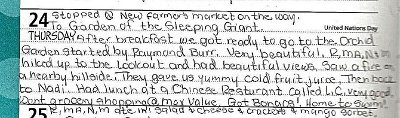 24 Stopped @ New Farmer's market on the way.
To Garden of the Sleeping Giant. United Nations Day
THURSDAY After breakfast we got ready to go to the Orchid
Garden started by Raymond Burr. Very beautiful. R, M, A, N & m
hiked up to the lookout and had beautiful views. Saw a fire on
a nearby hillside. They gave us yummy cold fruit juice. Then back
to Nadi. Had lunch at a Chinese Resturant called L.C. very good.
Went grocery shopping @ Max Value. Got Bonaqa! Home to swim!
25 R, M, A, N, m ate in! Salad & cheese & crackers & mango sorbet.